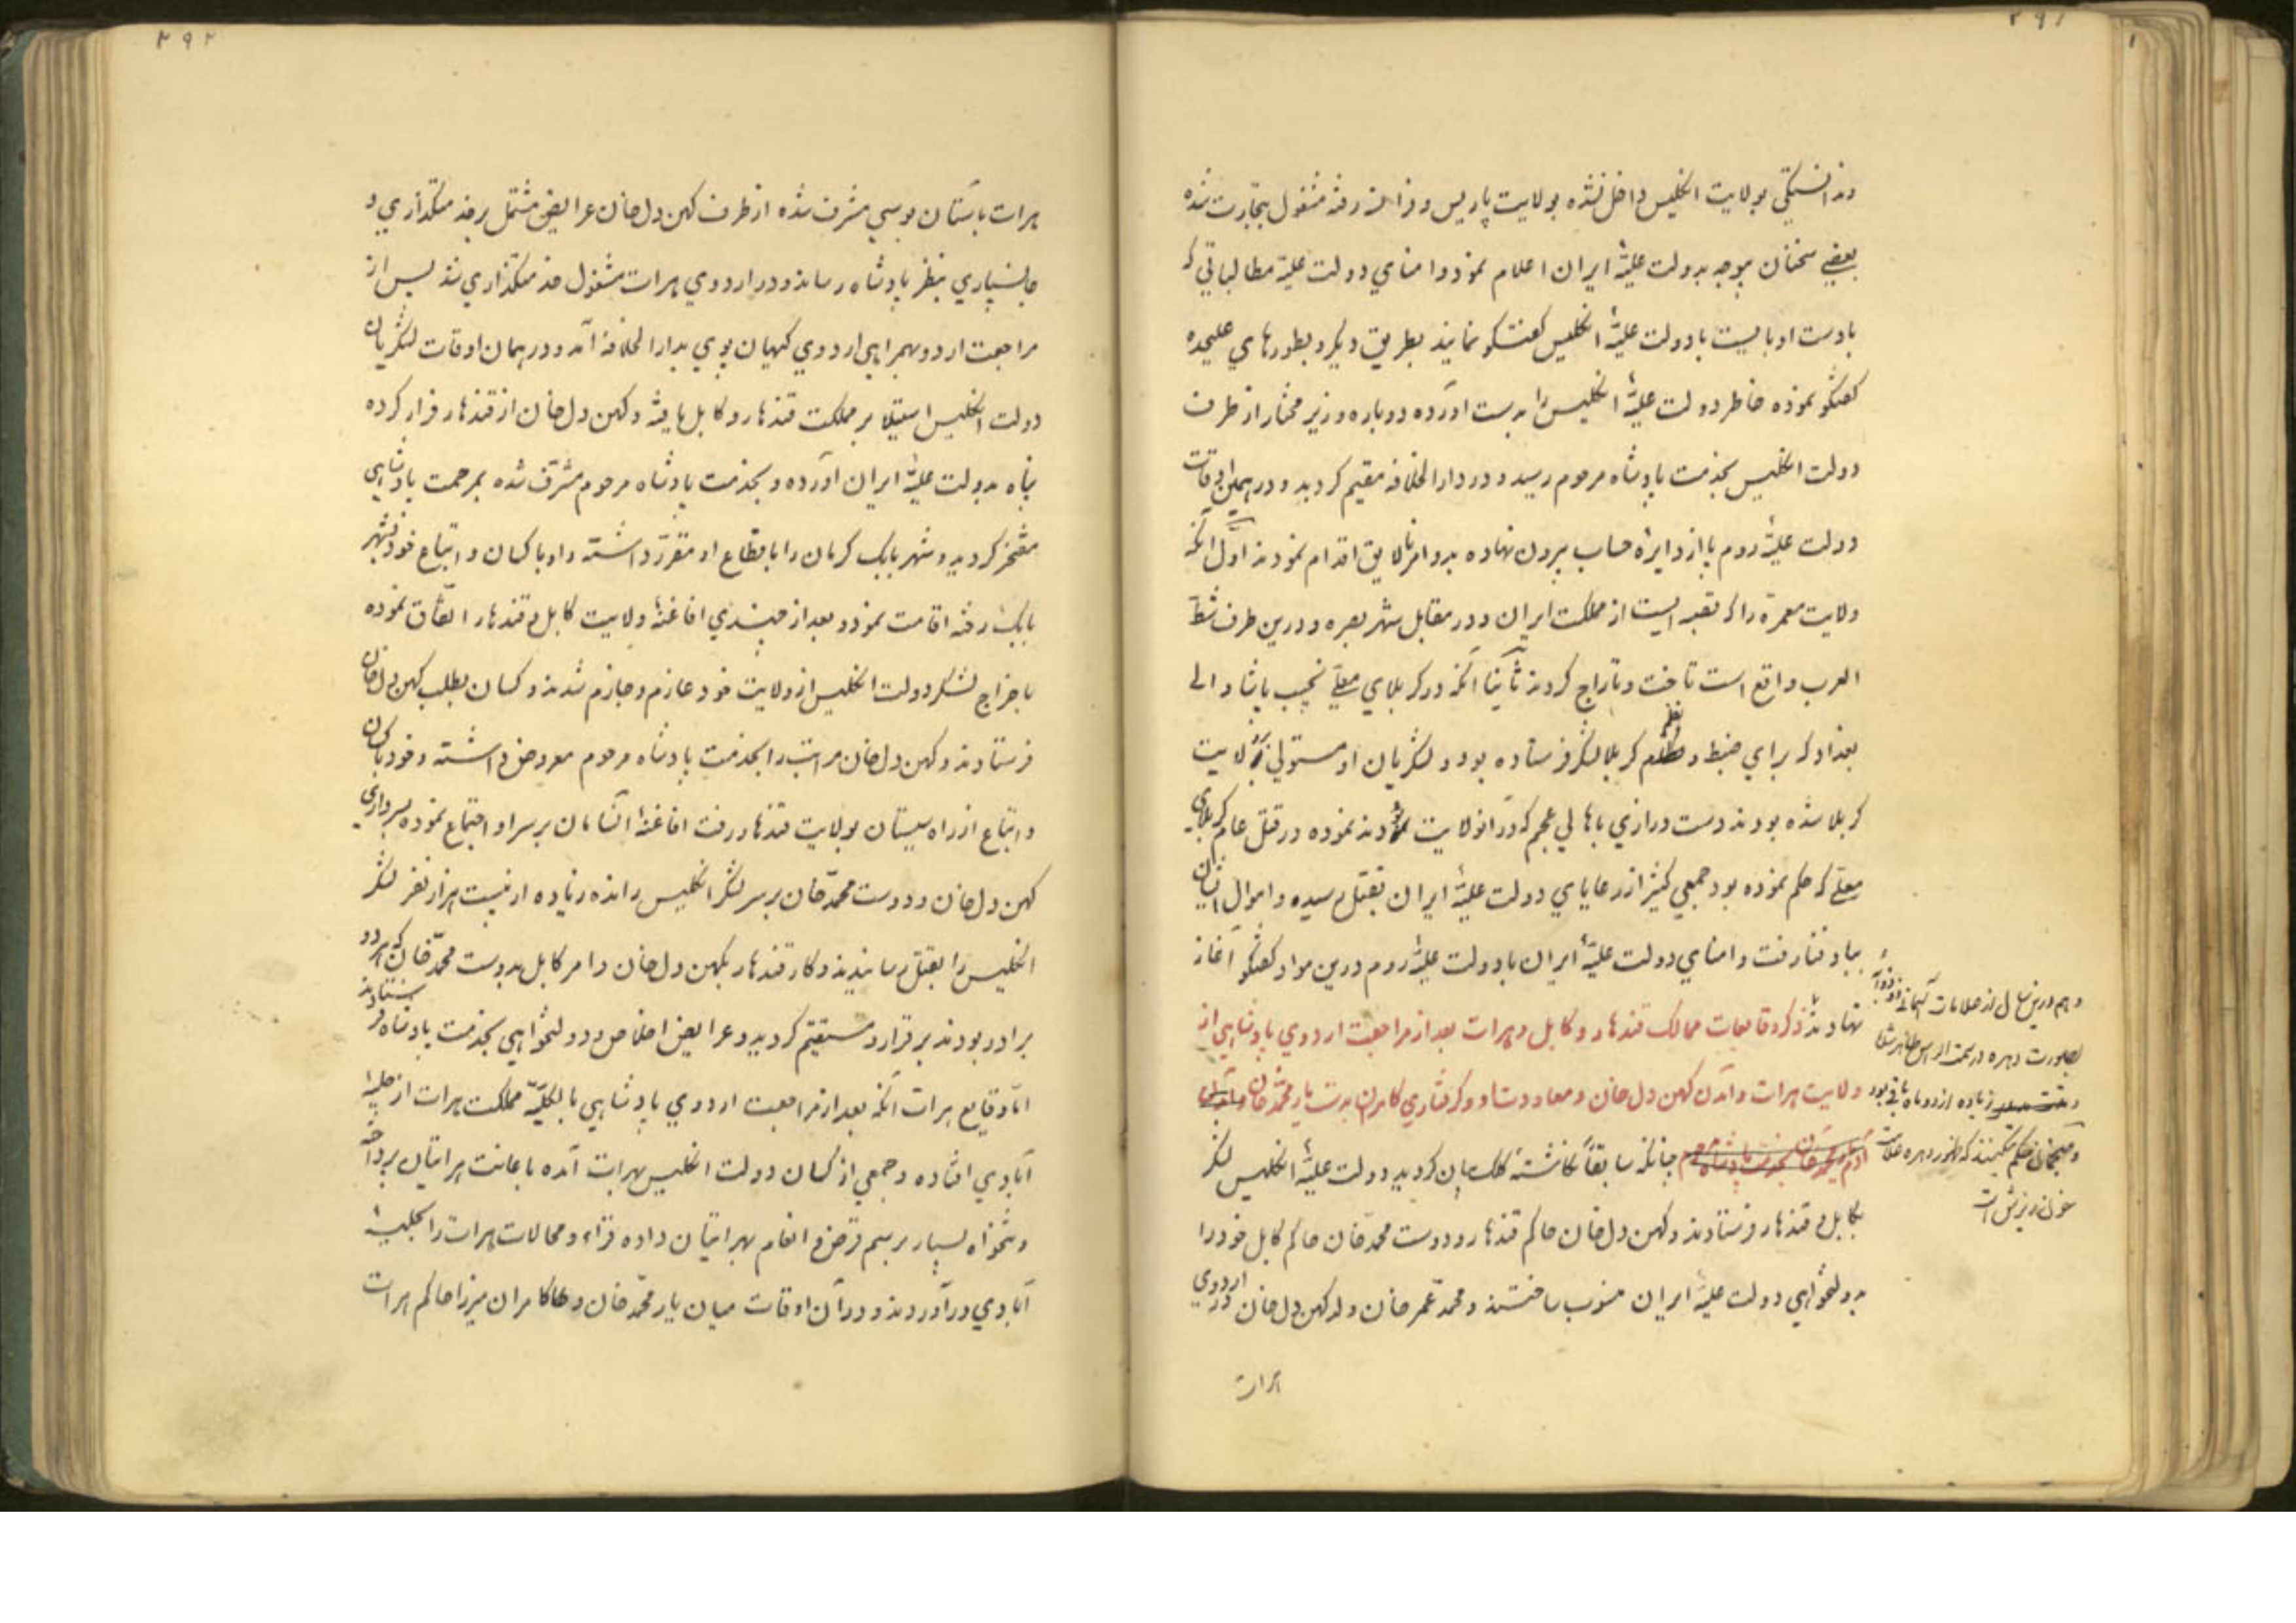 ۲۹۱
وندانستیکی بولایت انگلیس داخل نشده بولایت پاریس و فرانسه رفته مشغول بتجارت شده
بعضی سخنان موجه بدولت علیّهٔ ایران اعلام نمود و امنای دولت علیّه مطالباتی که
بادست او بایست با دولت علیّهٔ انگلیس گفتگو نمایند بطریق دیگر و بطورهای علیحده
گفتگو نموده خاطر دولت علیّهٔ انگلیس را بدست اورده دوباره وزیر مختار از طرف
دولت انگلیس بخدمت پادشاه مرحوم رسید و در دار الخلافه مقیم کردید و در همین اوقات
دولت علیّهٔ روم پا از دایرهٔ حساب بیرون نهاده بدو امر نالایق اقدام نمودند اوّل آنکه
ولایت محمره را که قصبه ایست از مملکت ایران و در مقابل شهر بصره و درین طرف شطّ
العرب واقع است تاخت و تاراج کردند ثانیا آنکه در کربلای معلّی نجیب پاشا والی
بغداد که برای ضبط و نظم کربلا لشکر فرستاده بود و لشکریان او مستولی بر ولایت
کربلا شده بودند دست درازی باهالی عجم که در انولایت بودند نموده در قتل عام کربلای
معلّی که حکم نموده بود جمعی کثیر از رعایای دولت علیّهٔ ایران بقتل رسیده و اموال ایشان
بباد فنا رفت و امنای دولت علیّهٔ ایران با دولت علیّهٔ روم درین مواد گفتگو آغاز
نهادند ذکر وقایعات ممالک قندهار و کابل و هرات بعد از مراجعت اردوی پادشاهی از
ولایت هرات و آمدن کهن دل خان و معاودت او و کرفتاری کامران بدست یار محمّد خان
چنانکه سابقاً نکاشتهٔ کلک بیان کردید دولت علیّهٔ انگلیس لشکر
بکابل و قندهار فرستادند و کهن دل خان حاکم قندهار و دوست محمد خان حاکم کابل خود را
بدولتخواهی دولت علیّهٔ ایران منسوب ساختند و محمّد عمر خان ولد کهن دل خان در اردوی
هرات
و هم درین سال از علامات آسمانی
بصورت دهره در سمت ظاهر شد
زیاده از دو ماه باقی بود
و منجمان حکم میکنند که ظهور دهره علامت
خون ریزش است
۲۹۲
هرات باستان بوسی مشرف شده از طرف کهن دل خان عرایض مشتمل بر خدمتکذاری و
جانسپاری بنظر پادشاه رساند و در اردوی هرات مشغول خدمتکذاری شد پس از
مراجعت اردو بهمراهی اردوی کیهان پوی بدار الخلافه آمد و در همان اوقات لشکریان
دولت انگلیس استیلا بر مملکت قندهار و کابل یافته و کهن دل خان از قندهار فرار کرده
پناه بدولت علیّهٔ ایران اورده و بخدمت پادشاه مرحوم مشرّف شده بمرحمت پادشاهی
مفتخر کردید و شهر بابک کرمان را باقطاع او مقرّر داشته و او با کسان و اتباع خود بشهر
بابک رفته اقامت نمود و بعد از چندی افاغنهٔ ولایت کابل و قندهار اتفّاق نموده
باخراج لشکر دولت انگلیس از ولایت خود عازم و جازم شدند و کسان بطلب کهن دل خان
فرستادند و کهن دل خان مراتب را بخدمت پادشاه مرحوم معروض داشته و خود با کسان
و اتباع از راه سیستان بولایت قندهار رفت افاغنهٔ انسامان بر سر او اجتماع نموده بسرداری
کهن دل خان و دوست محمّد خان بر سر لشکر انگلیس رانده زیاده از بیست هزار نفر لشکر
انگلیس را بقتل رسانیدند و کار قندهار بکهن دل خان و امر کابل بدوست محمّد خان که هر دو
برادر بودند برقرار و مستقیم کردید و عرایض اخلاص و دولتخواهی بخدمت پادشاه فرستادند
امّا وقایع هرات آنکه بعد از مراجعت اردوی پادشاهی بالکلیّه مملکت هرات از حلیهٔ
آبادی افتاده و جمعی از کسان دولت انگلیس بهرات آمده باعانت هراتیان پرداخته
و تنخواه بسیار برسم قرض و انعام بهراتیان داده قراء و محالات هرات را بحلیهٔ
آبادی درآوردند و در آن اوقات میان یار محمّد خان و کامران میرزا حاکم هرات